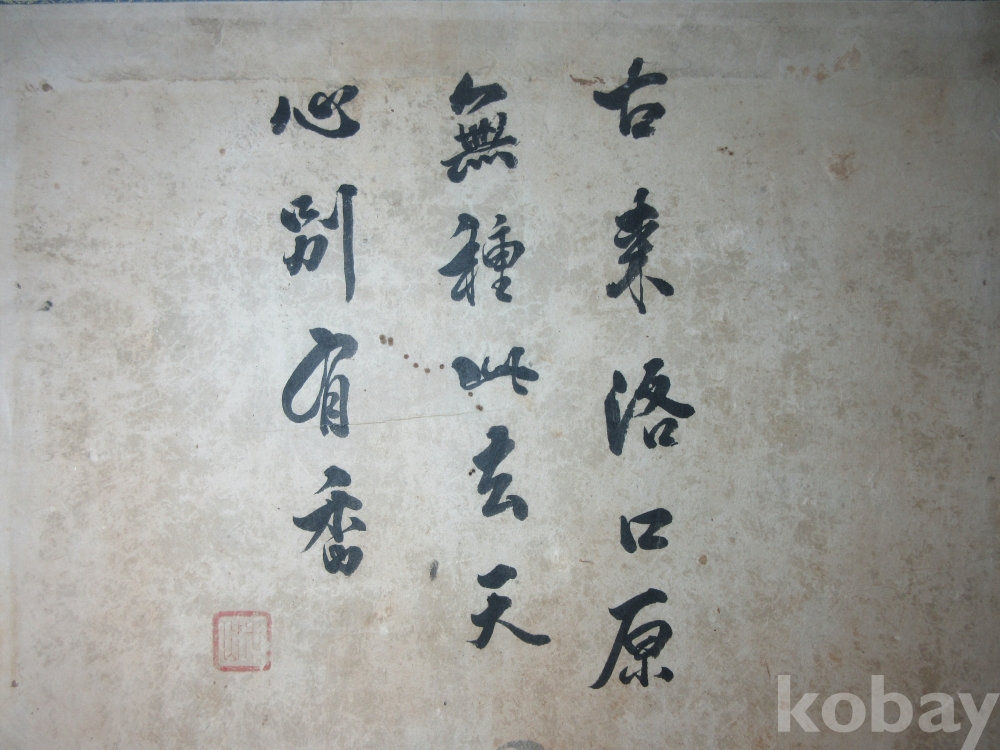 古來洛口原
無種此去天
心別有香
kobay